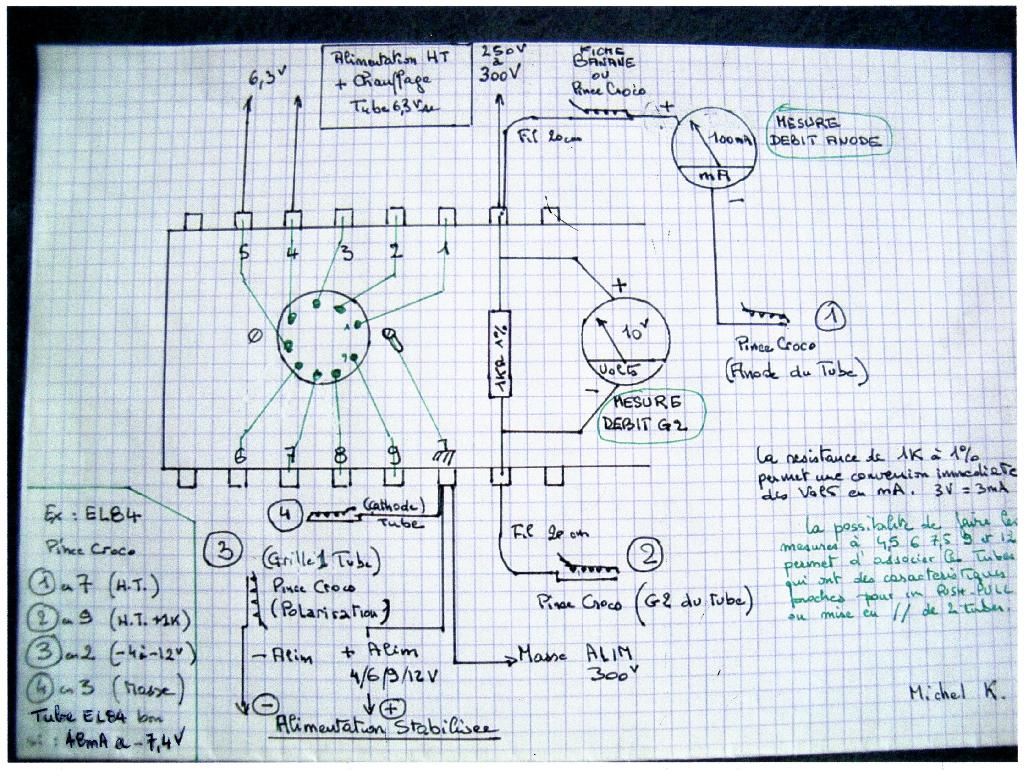 6,3V
Alimentation HT
+ Chauffage
Tube 6,3V
250V
à
300V
FICHE
BANANE
OU
Pince Croco
Fil 20cm
+
100mA
mA
-
MESURE
DEBIT ANODE
5 4 3 2 1
1KΩ 1%
+
10V
VOLTS
-
MESURE
DEBIT G2
1
Pince Croco
(Anode du Tube)
6 7 8 9
La resistance de 1K à 1%
permet une conversion immediate
des VOLTS en mA. 3V = 3mA
La possibilité de faire les
mesures à 4,5 6 7,5 9 et 12
permet d'associer les Tubes
qui ont des caracteristiques
proches pour un PUSH-PULL
ou mise en // de 2 tubes.
Michel K.
4
(Cathode)
Tube
3
(Grille 1 Tube)
Pince Croco
(Polarisation)
- Alim
+ Alim
4/6/9/12V
-
+
Alimentation Stabilisee
Fil 20 cm
2
Pince Croco (G2 du Tube)
Masse ALIM
300V
Ex : EL84
Pince Croco
1 en 7 (H.T.)
2 en 9 (H.T. +1K)
3 en 2 (-4 à -12V)
4 en 3 (Masse)
Tube EL84 bon
si : 48mA a -7,4V